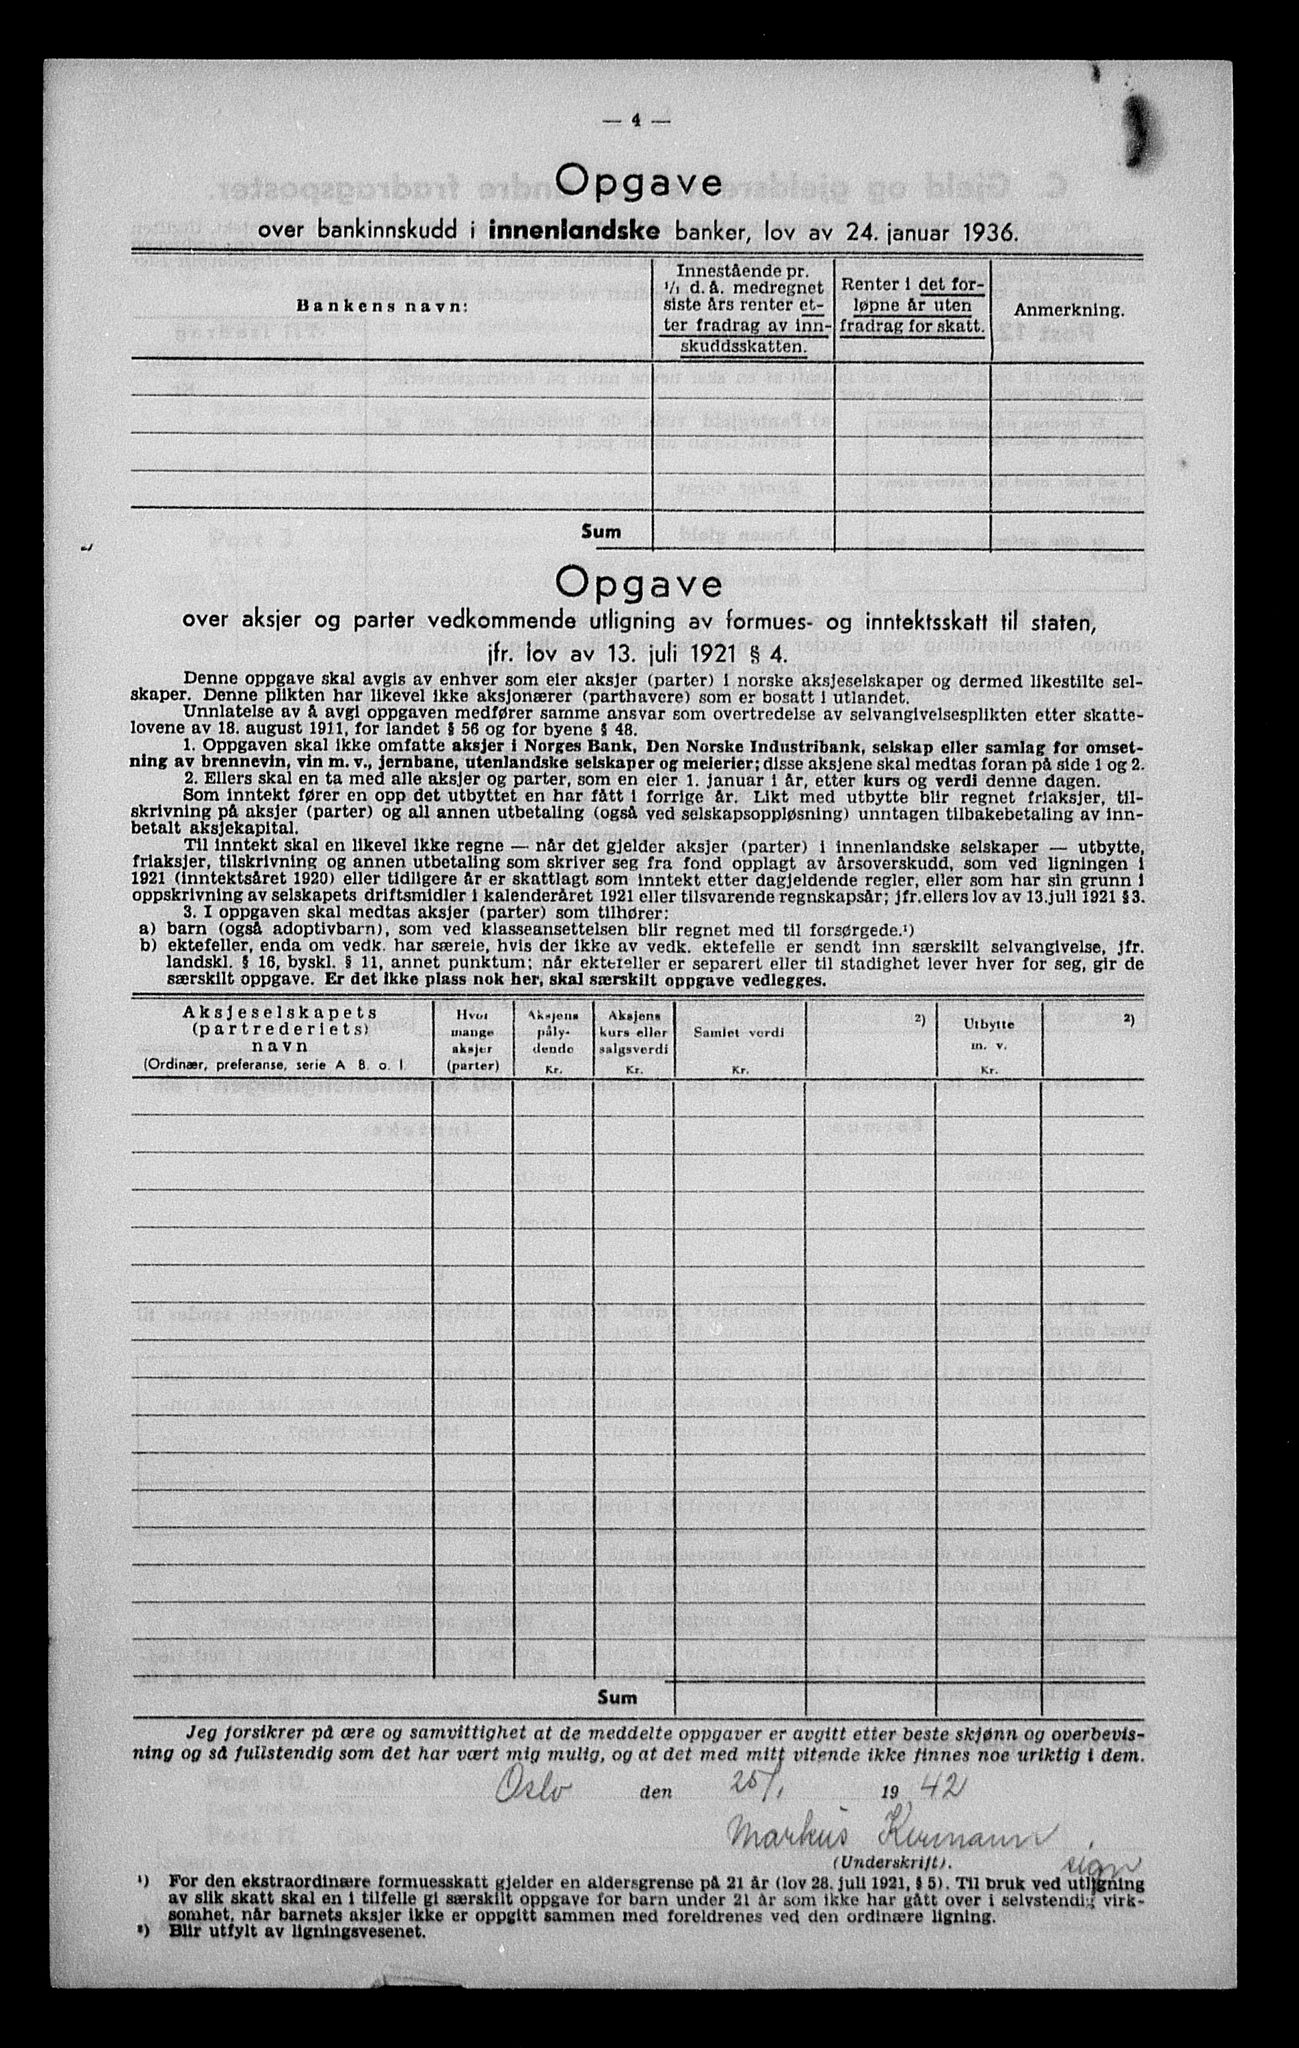 — 4 —
Opgave
over bankinnskudd i innenlandske banker, lov av 24. januar 1936.
Bankens navn:
Innestående pr. 1/1 d. å. medregnet siste års renter etter fradrag av innskuddsskatten.
Renter i det forløpne år uten fradrag for skatt.
Anmerkning.
Sum
Opgave
over aksjer og parter vedkommende utligning av formues- og inntektsskatt til staten,
jfr. lov av 13. juli 1921 § 4.
Denne oppgave skal avgis av enhver som eier aksjer (parter) i norske aksjeselskaper og dermed likestilte sel-
skaper. Denne plikten har likevel ikke aksjonærer (parthavere) som er bosatt i utlandet.
Unnlatelse av å avgi oppgaven medfører samme ansvar som overtredelse av selvangivelsesplikten etter skatte-
lovene av 18. august 1911, for landet § 56 og for byene § 48.
1. Oppgaven skal ikke omfatte aksjer i Norges Bank, Den Norske Industribank, selskap eller samlag for omset-
ning av brennevin, vin m. v., jernbane, utenlandske selskaper og meierier; disse aksjene skal medtas foran på side 1 og 2.
2. Ellers skal en ta med alle aksjer og parter, som en eier 1. januar i år, etter kurs og verdi denne dagen.
Som inntekt fører en opp det utbyttet en har fått i forrige år. Likt med utbytte blir regnet friaksjer, til-
skrivning på aksjer (parter) og all annen utbetaling (også ved selskapsoppløsning) unntagen tilbakebetaling av inn-
betalt aksjekapital.
Til inntekt skal en likevel ikke regne — når det gjelder aksjer (parter) i innenlandske selskaper — utbytte,
friaksjer, tilskrivning og annen utbetaling som skriver seg fra fond opplagt av årsoverskudd, som ved ligningen i
1921 (inntektsåret 1920) eller tidligere år er skattlagt som inntekt etter dagjeldende regler, eller som har sin grunn i
oppskrivning av selskapets driftsmidler i kalenderåret 1921 eller tilsvarende regnskapsår; jfr. ellers lov av 13. juli 1921 § 3.
3. I oppgaven skal medtas aksjer (parter) som tilhører:
a) barn (også adoptivbarn), som ved klasseansettelsen blir regnet med til forsørgede.¹)
b) ektefeller, enda om vedk. har særeie, hvis der ikke av vedk. ektefelle er sendt inn særskilt selvangivelse, jfr.
landskl. § 16, byskl. § 11, annet punktum; når ektefeller er separert eller til stadighet lever hver for seg, gir de
særskilt oppgave. Er det ikke plass nok her, skal særskilt oppgave vedlegges.
Aksjeselskapets (partrederiets) navn (Ordinær, preferanse, serie A B. o. l.
Hvor mange aksjer (parter)
Aksjens pålydende Kr.
Aksjens kurs eller salgsverdi Kr.
Samlet verdi Kr.
²)
Utbytte m. v. Kr.
²)
Sum
Jeg forsikrer på ære og samvittighet at de meddelte oppgaver er avgitt etter beste skjønn og overbevis-
ning og så fullstendig som det har vært mig mulig, og at det med mitt vitende ikke finnes noe uriktig i dem.
Oslo den 25/1 1942
Markus Kermann
(Underskrift). sign
¹) For den ekstraordinære formuesskatt gjelder en aldersgrense på 21 år (lov 28. juli 1921, § 5). Til bruk ved utligning
av slik skatt skal en i tilfelle gi særskilt oppgave for barn under 21 år som ikke har gått over i selvstendig virk-
somhet, når barnets aksjer ikke er oppgitt sammen med foreldrenes ved den ordinære ligning.
²) Blir utfylt av ligningsvesenet.